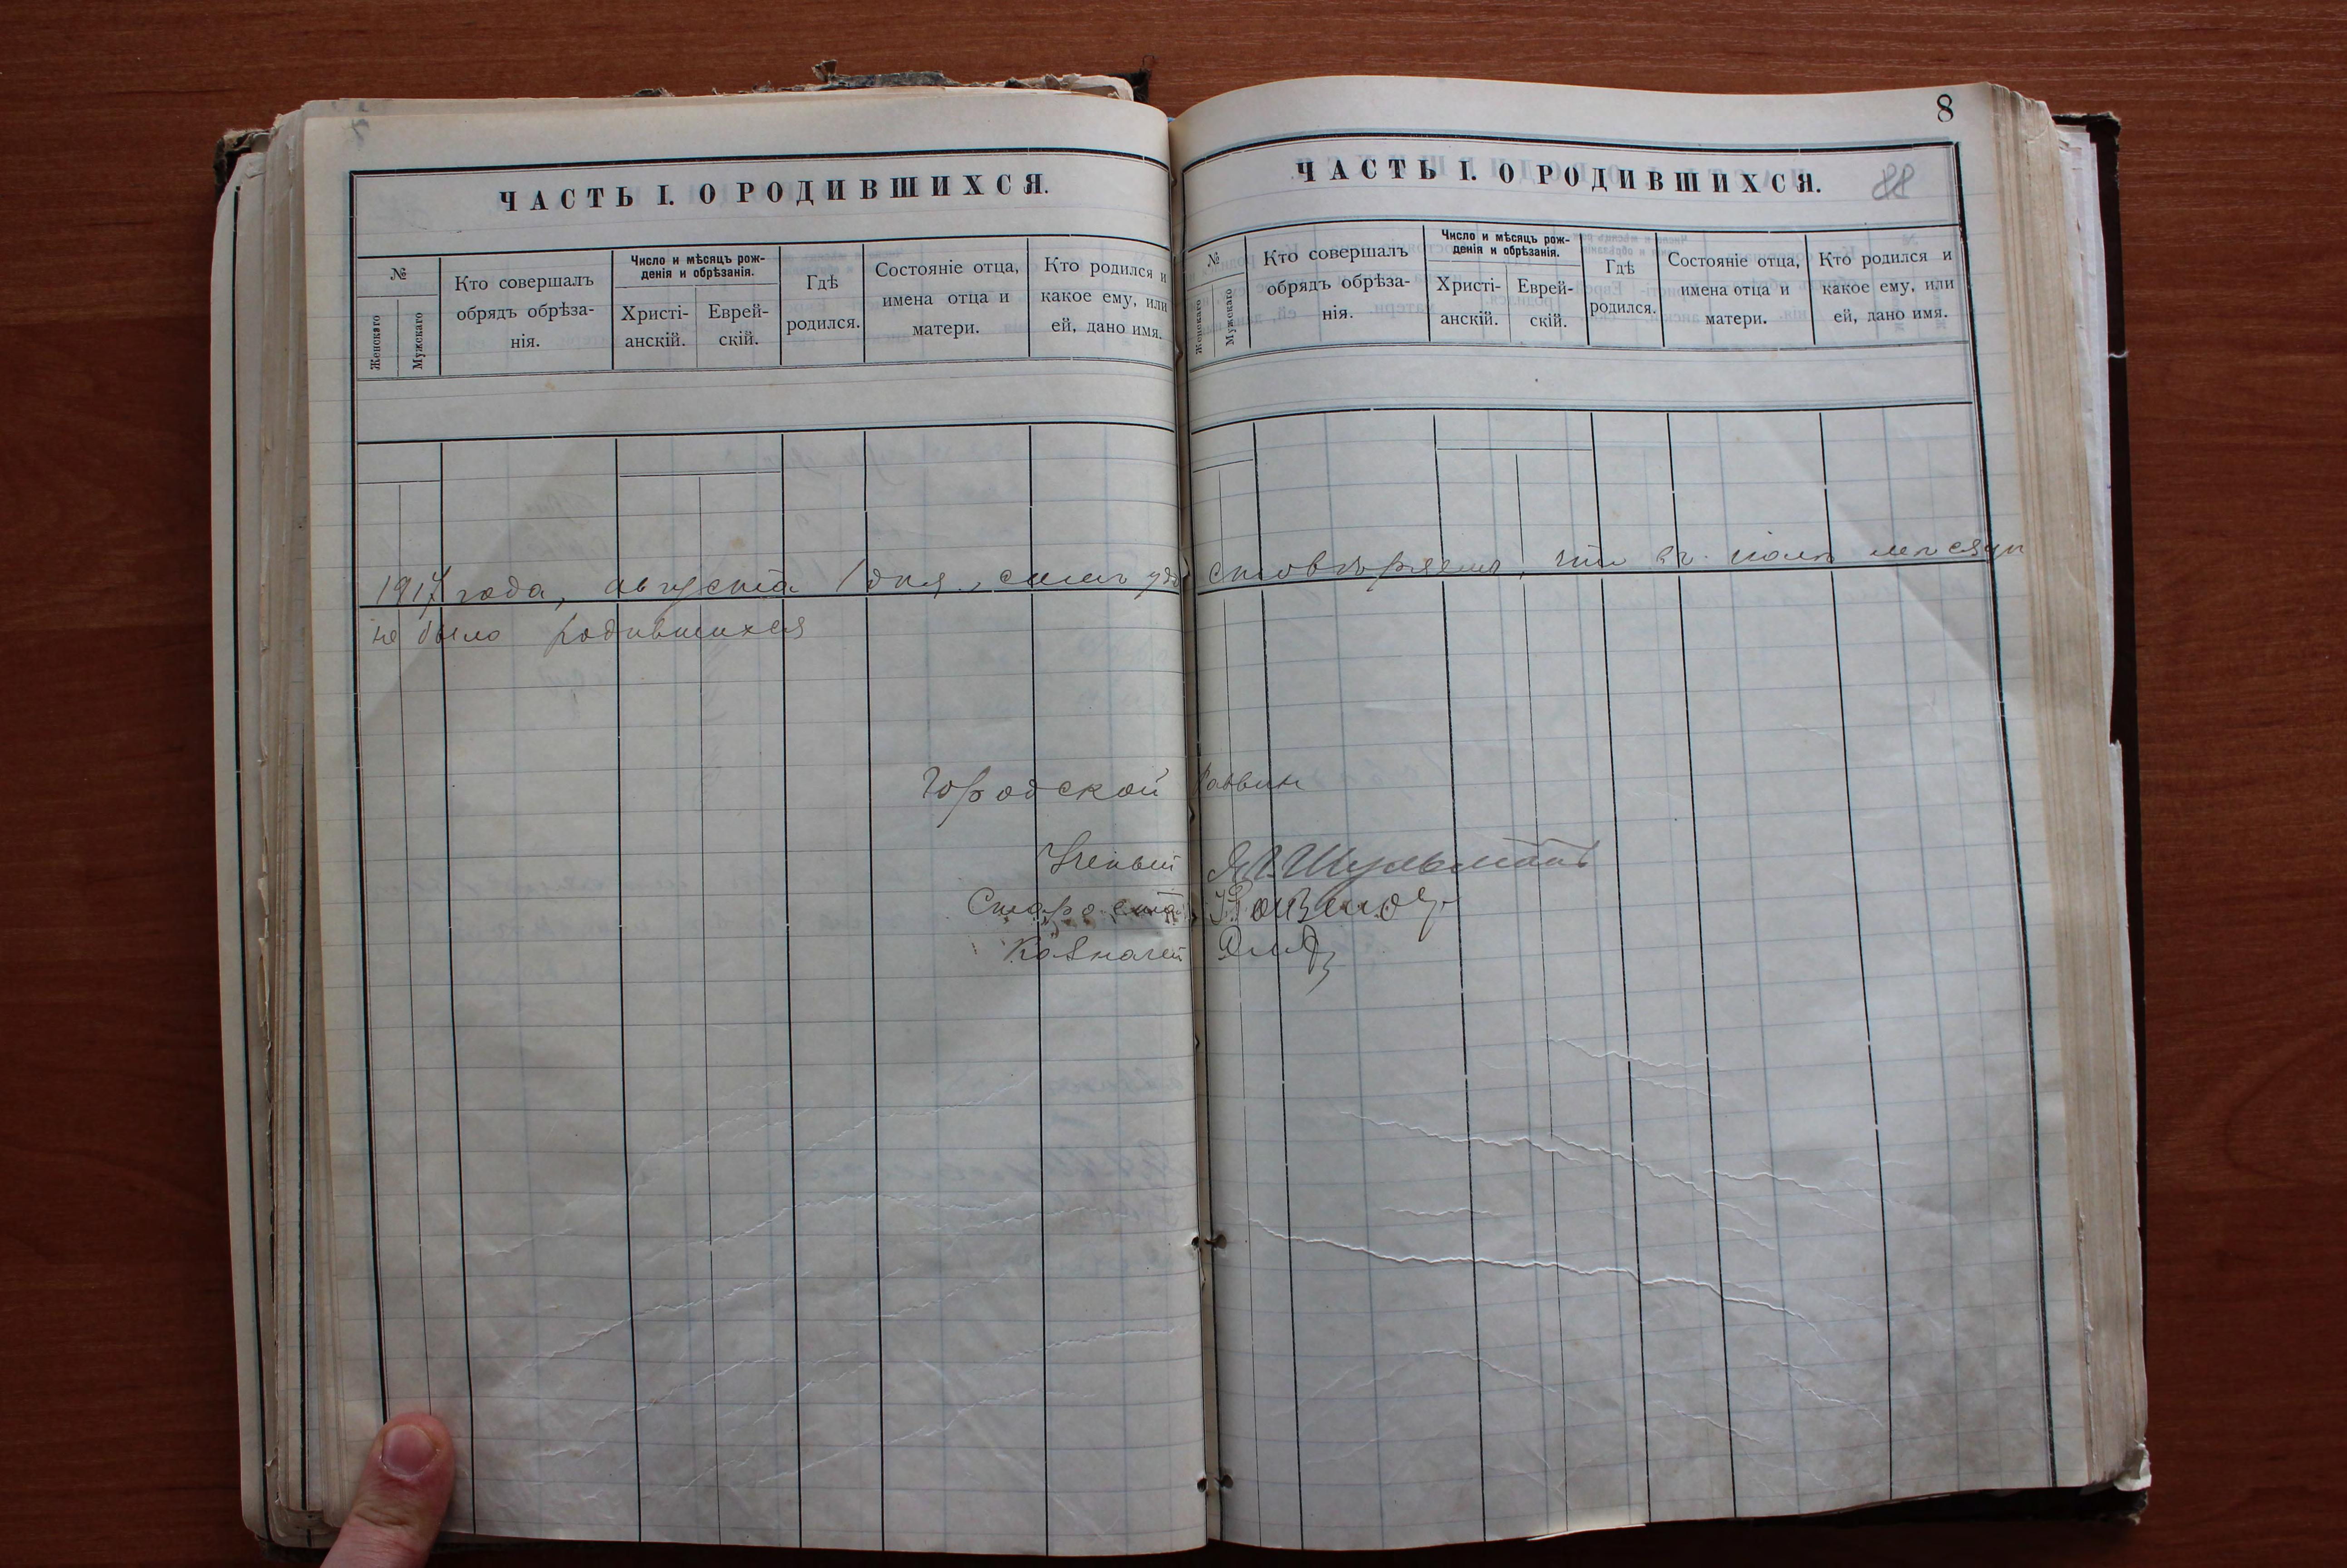 8
ЧАСТЬ I. О РОДИВШИХСЯ.
№
Женскаго
Мужскаго
Кто совершалъ
обрядъ обрѣза-
нія.
Число и мѣсяцъ рож-
денія и обрѣзанія.
Христі-
анскій.
Еврей-
скій.
Гдѣ
родился.
Состояніе отца,
имена отца и
матери.
Кто родился и
какое ему, или
ей, дано имя.
ЧАСТЬ I. О РОДИВШИХСЯ.
88
№
Женскаго
Мужскаго
Кто совершалъ
обрядъ обрѣза-
нія.
Число и мѣсяцъ рож-
денія и обрѣзанія.
Христі-
анскій.
Еврей-
скій.
Гдѣ
родился.
Состояніе отца,
имена отца и
матери.
Кто родился и
какое ему, или
ей, дано имя.
1917 года, августа 1 дня, симъ удостовѣряемъ, что въ іюлѣ мѣсяцѣ
не было родившихся
Городской Раввин
Ученый Шульманъ
Староста
Казначей